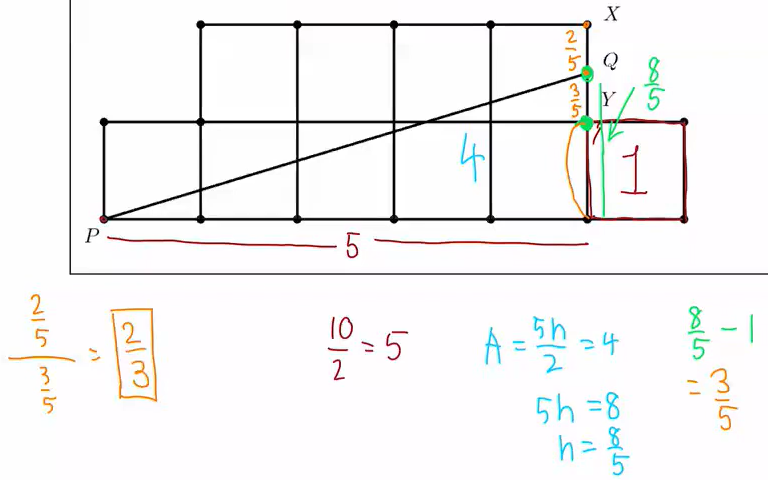 X
2/5
Q
3/5
Y
8/5
4
1
P
5
(2/5)/(3/5) = 2/3
10/2 = 5
A = 5h/2 = 4
5h = 8
h = 8/5
8/5 - 1
= 3/5